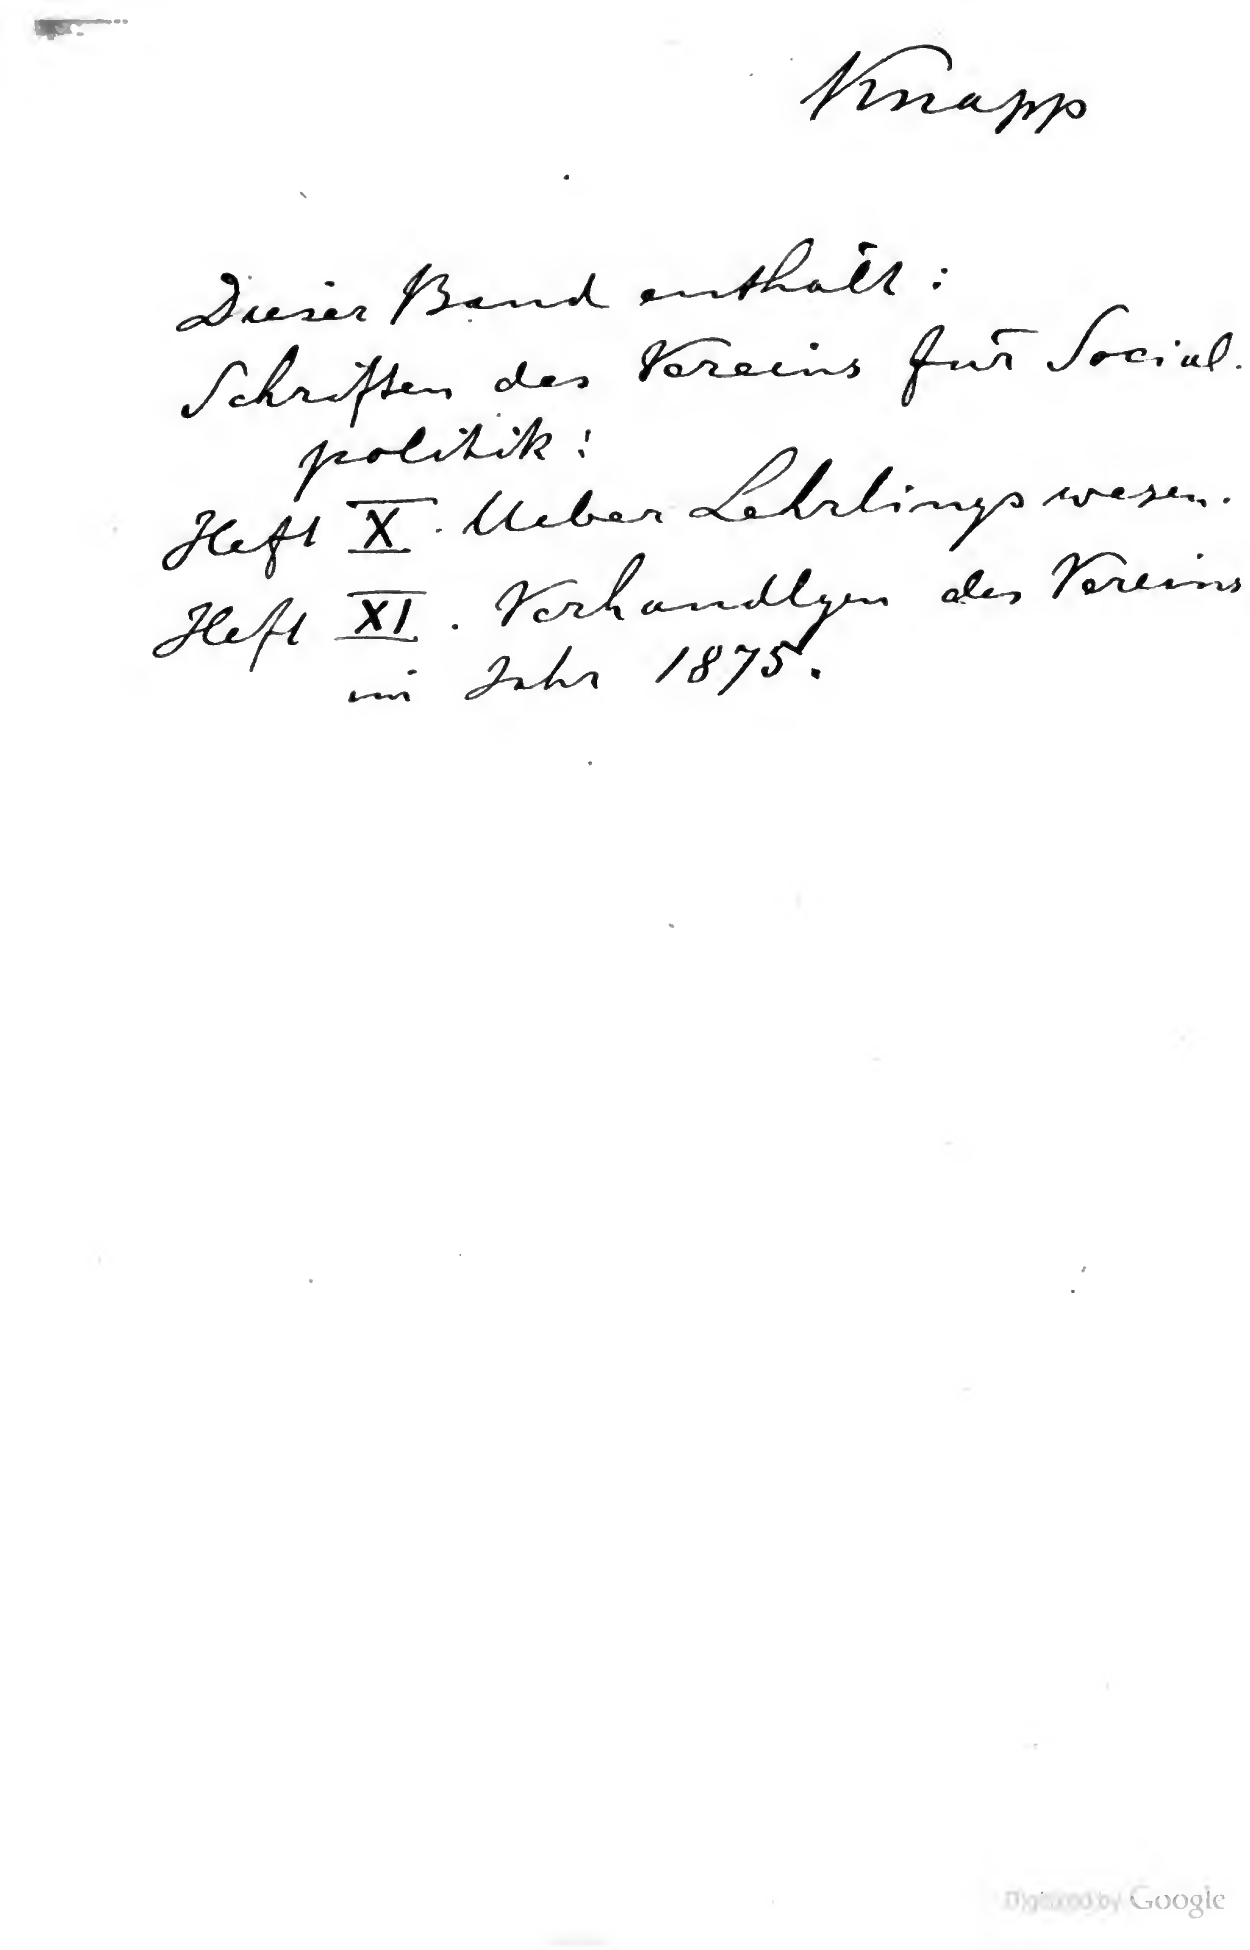 Knapp
Dieser Band enthält:
Schriften des Vereins für Social.
politik:
Heft X. Ueber Lehrlingswesen.
Heft XI. Verhandlgen des Vereins
im Jahr 1875.
Digitized by Google